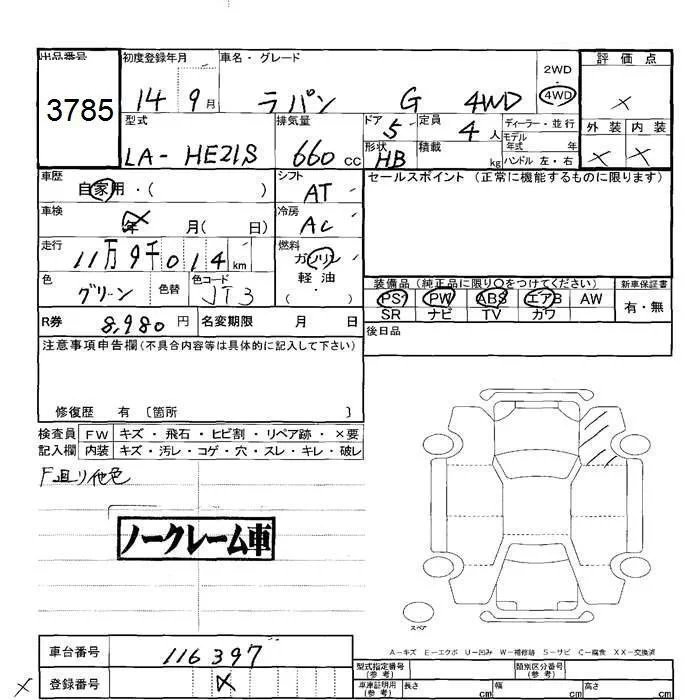 出品番号 3785
初度登録年月 14 9月
車名・グレード ラパン G 4WD
2WD
4WD
評価点 ×
外装 内装
× ×
型式 LA-HE21S
排気量 660 cc
ドア 5
定員 4人
形状 HB
積載 kg
ディーラー・並行
モデル年式 年式
ハンドル 左・右
車歴 自家用・( )
シフト AT
セールスポイント (正常に機能するものに限ります)
車検 年 月( 日)
冷房 AC
走行 11万9千014 km
燃料 ガソリン
軽油
( ・ )
色 グリーン 色替
色コード JT3
装備品 (純正品に限り○をつけてください)
新車保証書
PS PW ABS エアB AW
SR ナビ TV カワ
有・無
R券 8,980 円 名変期限 月 日
後日品
注意事項申告欄(不具合内容等は具体的に記入して下さい)
修復歴 有 〔箇所 〕
検査員記入欄
FW キズ・飛石・ヒビ割・リペア跡・×要
内装 キズ・汚レ・コゲ・穴・スレ・キレ・破レ
F廻り他色
ノークレーム車
スペア
A-キズ E-エクボ U-凹み W-補修跡 S-サビ C-腐食 XX-交換済
車台番号 116397
登録番号 ×
×
型式指定番号(参考)
類別区分番号(参考)
車庫証明用(参考) 長さ cm 幅 cm 高さ cm